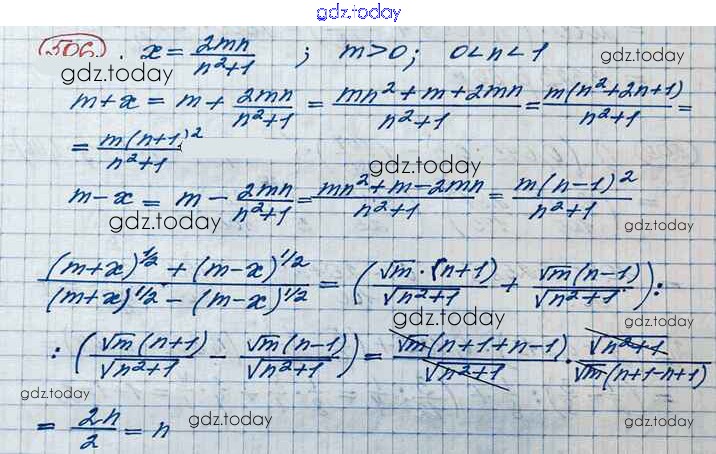 gdz.today
506. x = 2mn/(n²+1) ; m>0; 0<n<1
gdz.today gdz.today
m+x = m + 2mn/(n²+1) = (mn²+m+2mn)/(n²+1) = m(n²+2n+1)/(n²+1) =
= m(n+1)²/(n²+1)
gdz.today
m-x = m - 2mn/(n²+1) = (mn²+m-2mn)/(n²+1) = m(n-1)²/(n²+1)
gdz.today gdz.today
((m+x)^1/2 + (m-x)^1/2)/((m+x)^1/2 - (m-x)^1/2) = (√m·(n+1)/√(n²+1) + √m(n-1)/√(n²+1)):
gdz.today
: (√m(n+1)/√(n²+1) - √m(n-1)/√(n²+1)) = √m(n+1+n-1)/√(n²+1) · √(n²+1)/(√m(n+1-n+1))
gdz.today gdz.today
= 2n/2 = n
gdz.today